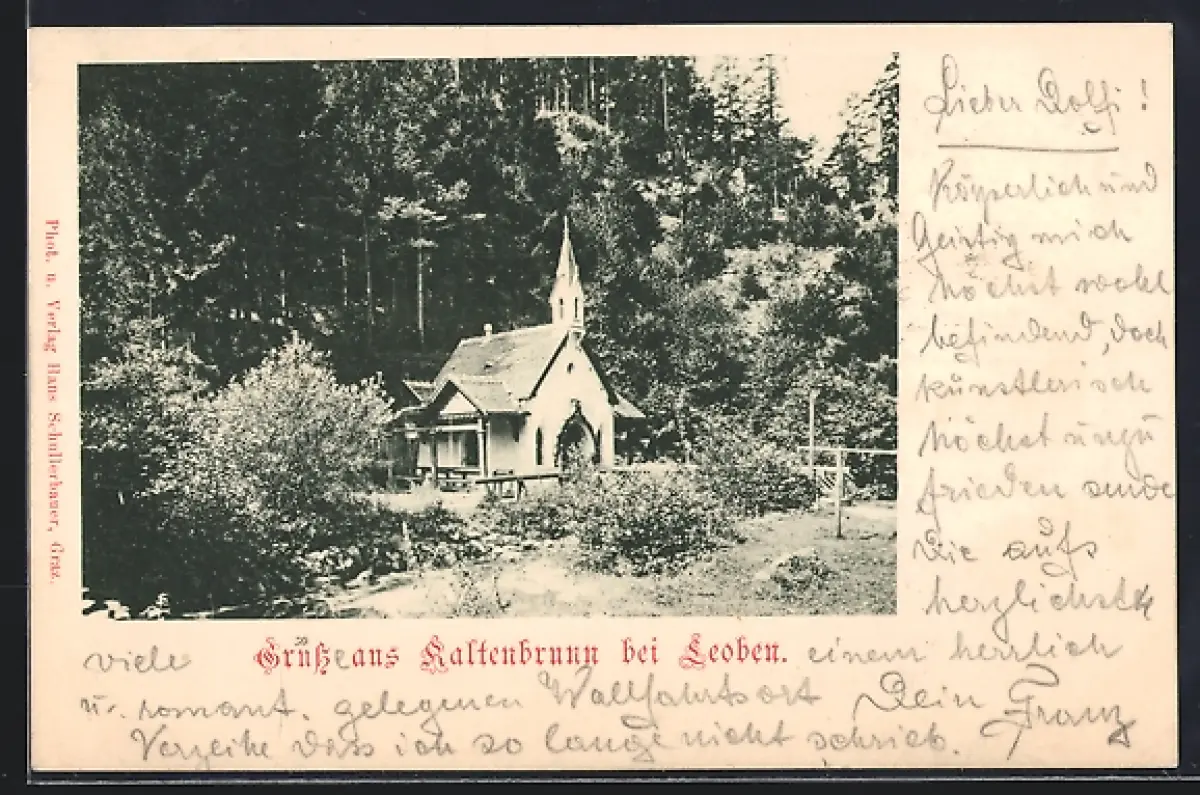 Lieber Dolfi!
Körperlich und
Geistig mich
höchst wohl
befindend, doch
künstlerisch
höchst unzu
frieden sende
Die aufs
herzlichste
viele Grüße aus Kaltenbrunn bei Leoben. einem herrlich
u. romant. gelegenen Wallfahrtsort Dein Franz
Verzeihe dass ich so lange nicht schrieb.
Phot. u. Verlag Hans Schullerbauer, Graz.